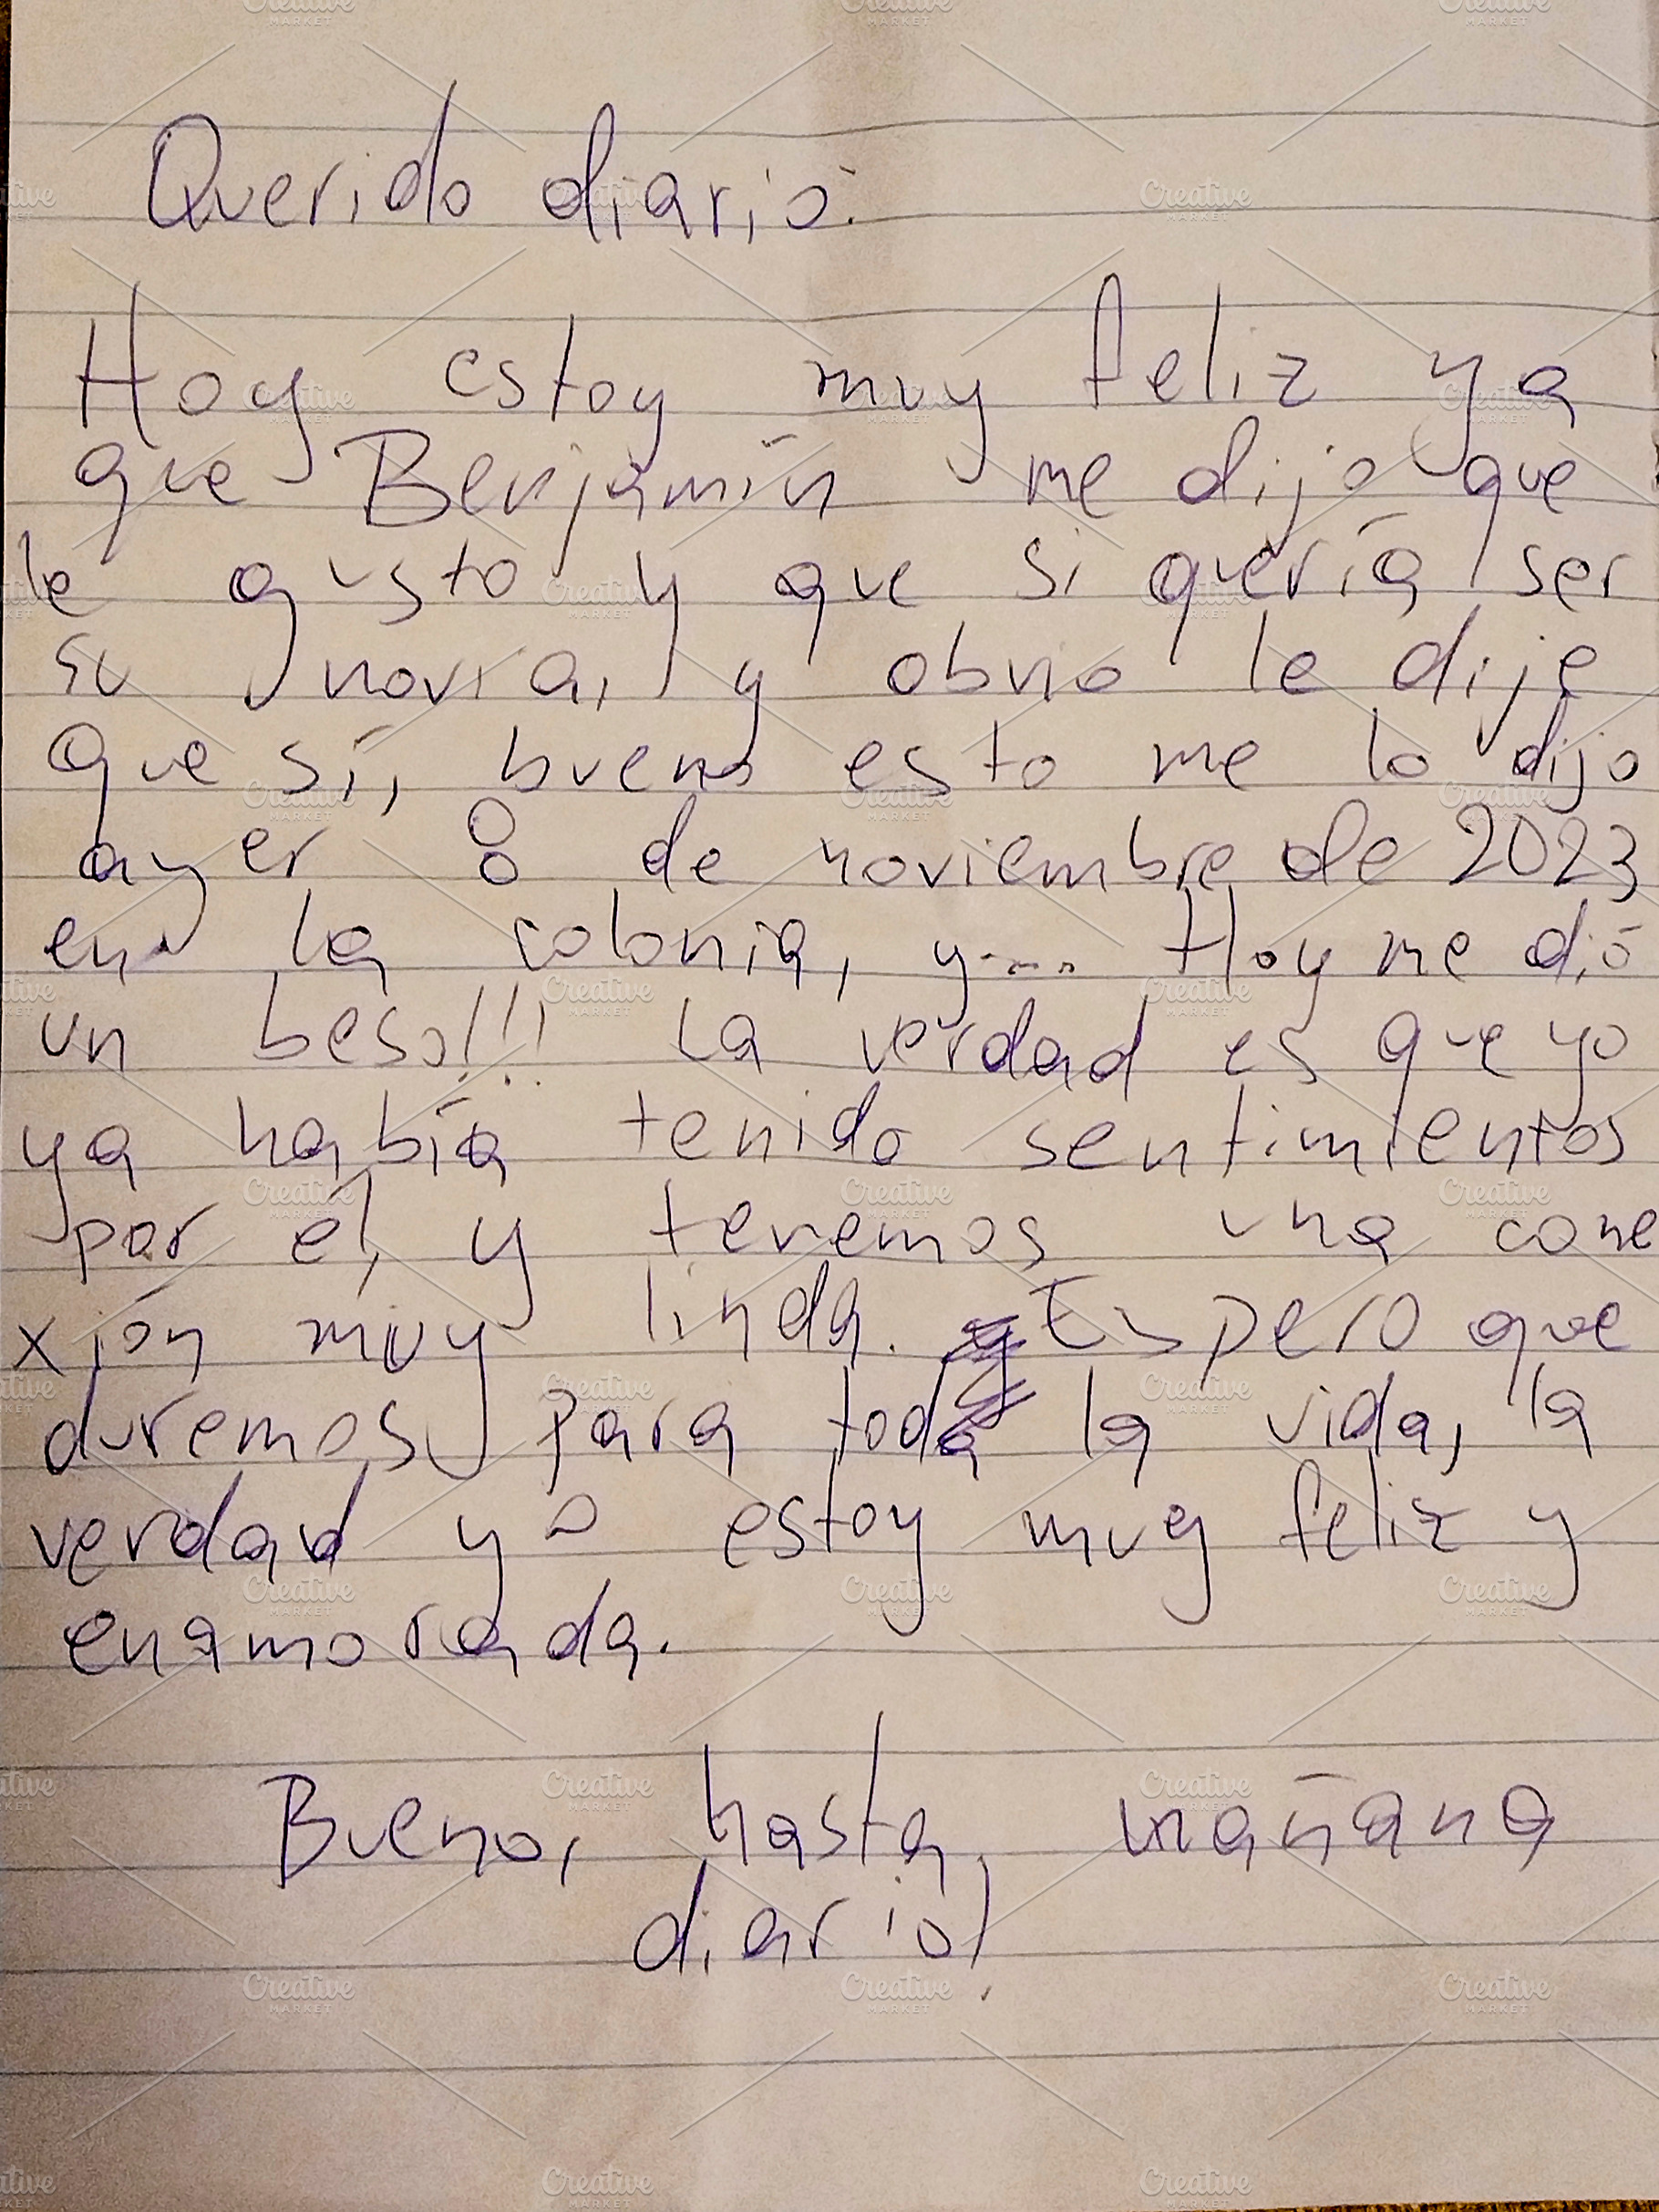 Querido diario:
Hoy estoy muy feliz ya
que Benjamín me dijo que
le gusto y que si quería ser
su novia, y obvio le dije
que sí, bueno esto me lo dijo
ayer 8 de noviembre de 2023
en la colonia, y.... Hoy me dió
un beso!!! La verdad es que yo
ya había tenido sentimientos
por él, y tenemos una cone
xión muy linda. Espero que
duremos para toda la vida, la
verdad yo estoy muy feliz y
enamorada.
Bueno, hasta mañana
diario!
Creative MARKET